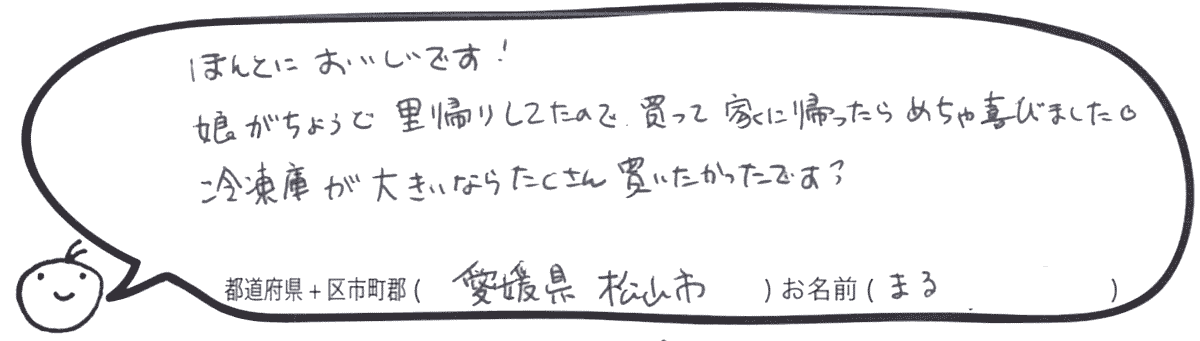 ほんとに おいしいです!
娘がちょうど 里帰りしてたので 買って 家に帰ったら めちゃ喜びました。
冷凍庫が 大きいなら たくさん 買いたかったです?
都道府県+区市町郡( 愛媛県 松山市 ) お名前( まる )